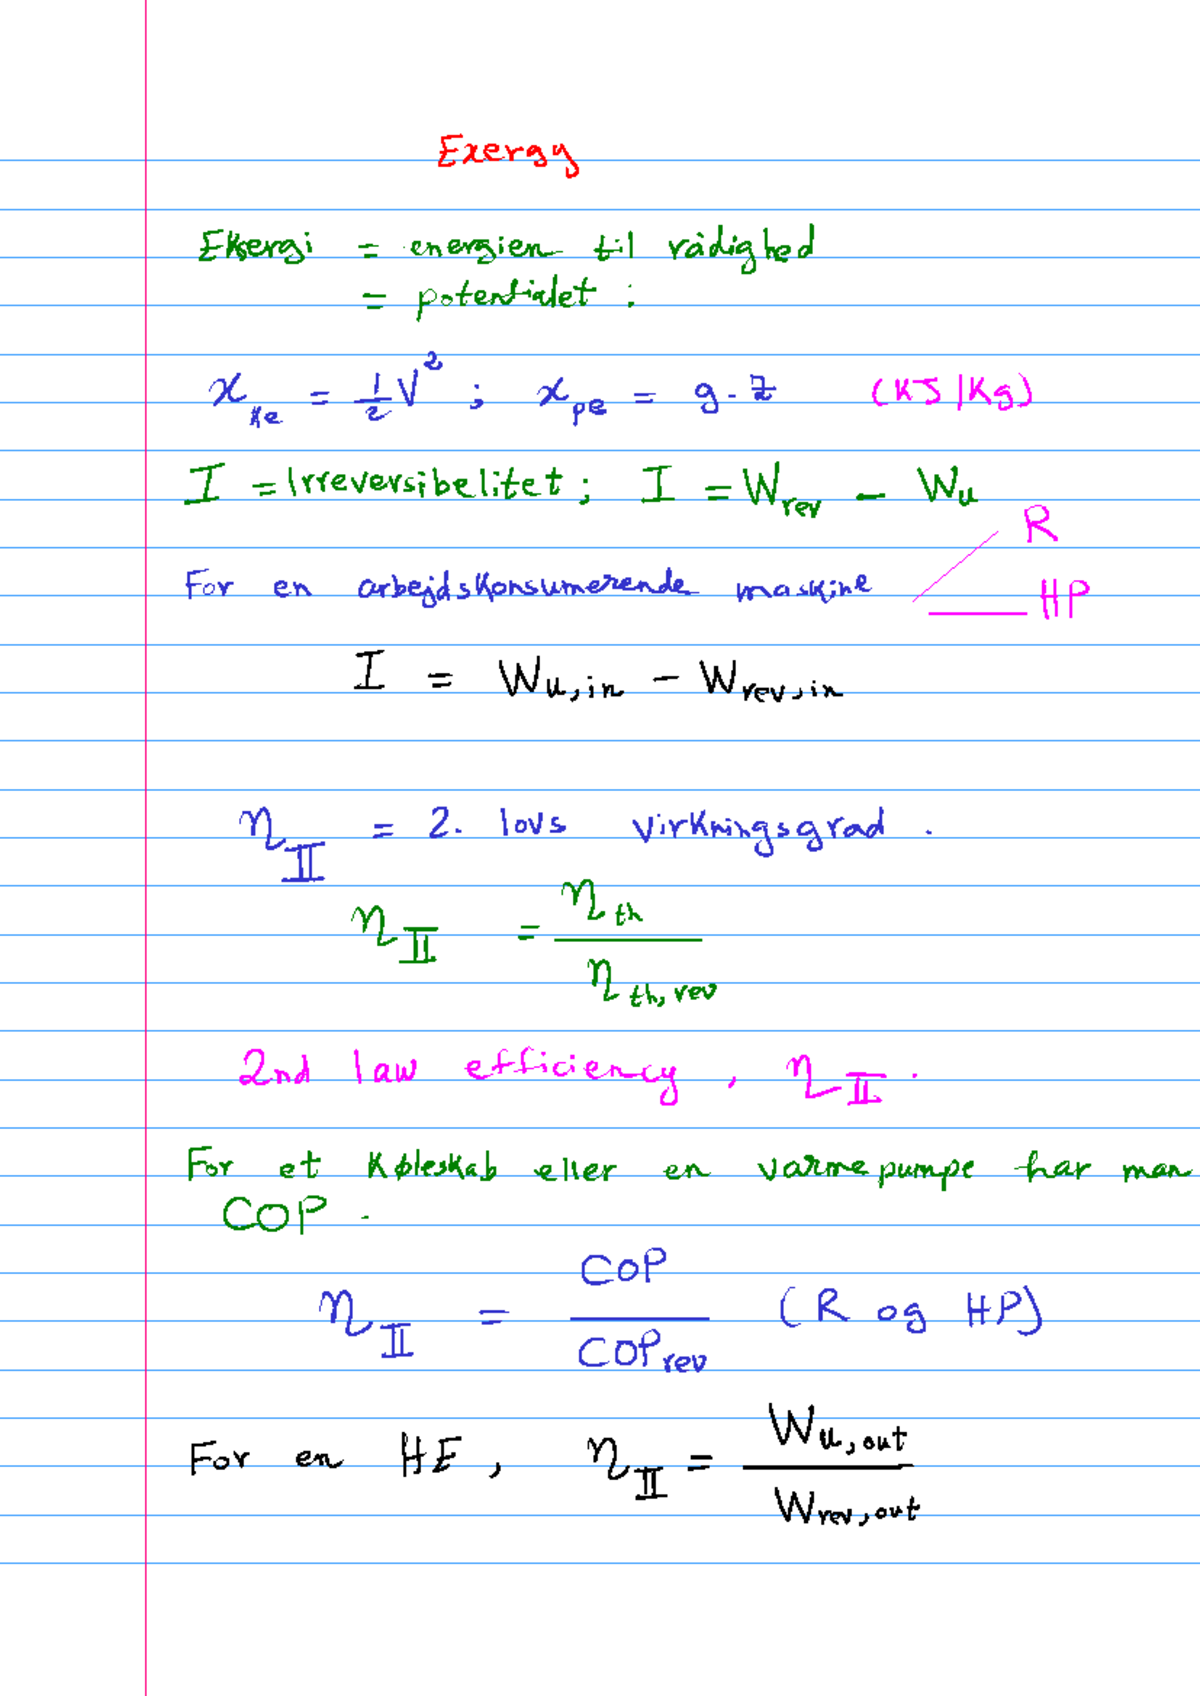 Exergy
Eksergi = energien til rådighed
= potentialet :
x_ke = 1/2 V² ; x_pe = g · z (KJ/Kg)
I = Irreversibelitet ; I = W_rev − W_u
R
For en arbejdskonsumerende maskine
HP
I = W_u,in − W_rev,in
η_II = 2. lovs virkningsgrad .
η_II = η_th / η_th,rev
2nd law efficiency , η_II .
For et Køleskab eller en varmepumpe har man
COP .
η_II = COP / COP_rev (R og HP)
For en HE , η_II = W_u,out / W_rev,out